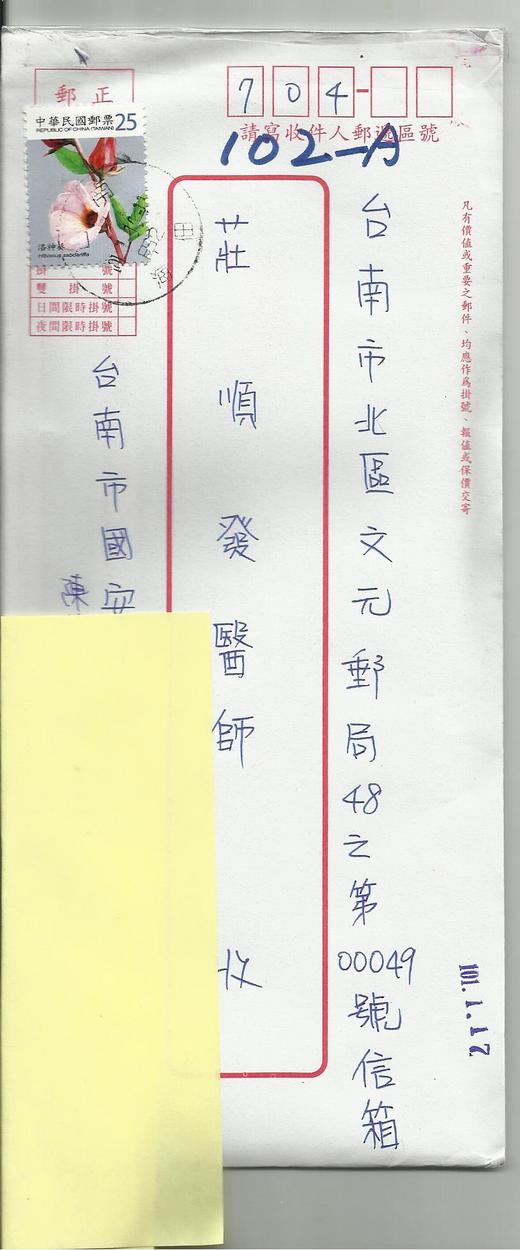 704-
請寫收件人郵遞區號
102-A
郵 正
中華民國郵票 25
REPUBLIC OF CHINA (TAIWAN)
洛神葵
Hibiscus sabdariffa
掛 號
雙 掛 號
日間限時掛號
夜間限時掛號
凡有價值或重要之郵件、均應作為掛號、報值或保價交寄
台南市北區文元郵局48之第00049號信箱
莊順發醫師 收
台南市國安
陳
101.1.17